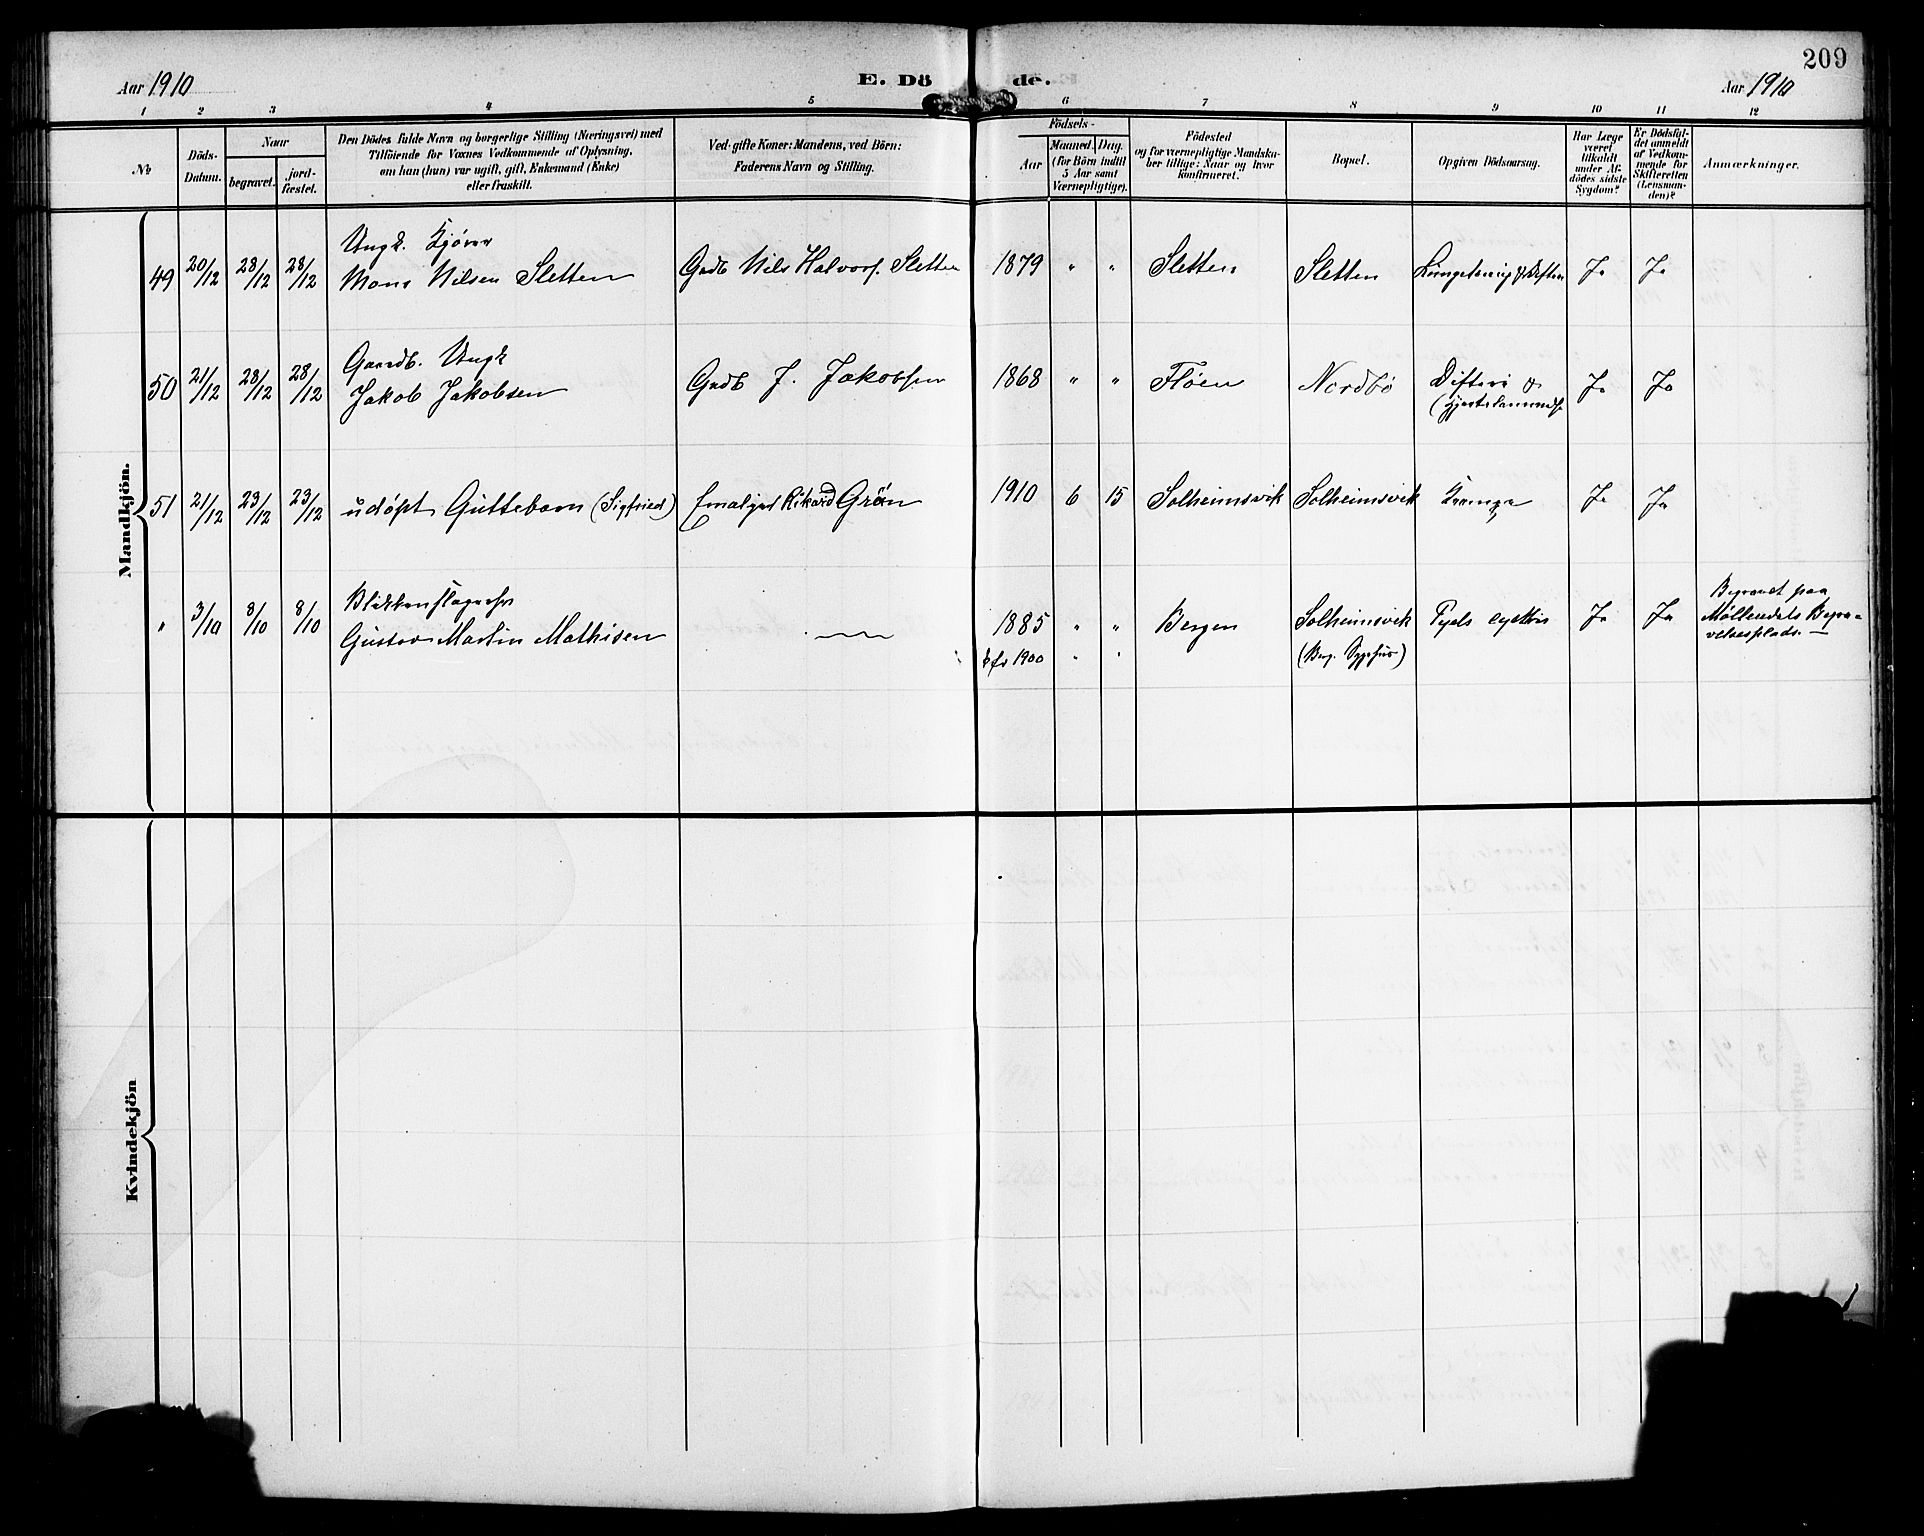 209
Aar 1910
E. Dö de.
Aar 1910
1 2 3 4 5 6 7 8 9 10 11 12
No
Döds-Datum.
Naar
begravet.
jord-fæstet.
Den Dödes fulde Navn og borgerlige Stilling (Næringsvei) med
Tilföiende for Voxnes Vedkommende af Oplysning,
om han (hun) var ugift, gift, Enkemand (Enke)
eller fraskilt.
Ved gifte Koner: Mandens, ved Börn:
Faderens Navn og Stilling.
Födsels-
Aar
Maaned.
Dag.
(for Börn indtil
5 Aar samt
Værnepligtige).
Födested
og for værnepligtige Mandska-
ber tillige: Naar og hvor
konfirmeret.
Bopæl.
Opgiven Dödsaarsag.
Har Læge
været
tilkaldt
under Af-
dödes sidste
Sygdom?
Er Dödsfal-
det anmeldt
af Vedkom-
mende for
Skifteretten
(Lensman-
den)?
Anmærkninger.
Mandkjön.
Ungk. Kjörer
49 20/12 28/12 28/12 Mons Nilsen Sletten Gadb Nils Halvors. Sletten 1879 " " Sletten Sletten Ja Ja
Gaardb. Ungk
50 21/12 28/12 28/12 Jakob Jakobsen Gadb J. Jakobsen 1868 " " Flöen Nordbö Difteri & Ja Ja
51 21/12 23/12 23/12 udöpt Guttebarn (Sigfried) Rikard Grön 1910 6 15 Solheimsvik Solheimsvik Krampe Ja Ja
Blikkenslagersv
" 3/10 8/10 8/10 Gustav Martin Mathisen 1885 " " Bergen Solheimsvik Ja Ja Begravet paa
Möllendals Begra-
velsesplads. —
kfr 1900 " " (Berg. Sygehus)
Kvindekjön